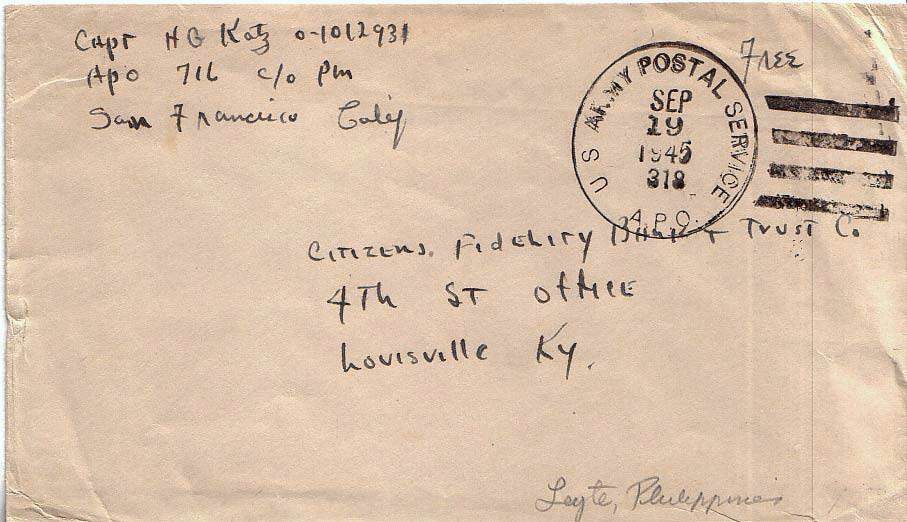 Capt H G Katz O-1012931
Apo 716 c/o Pm
San Francisco Calif
Free
U S ARMY POSTAL SERVICE
SEP
19
1945
318
A.P.O.
Citizens. Fidelity Bank + Trust Co
4Th ST Office
Louisville Ky.
Leyte, Philippines